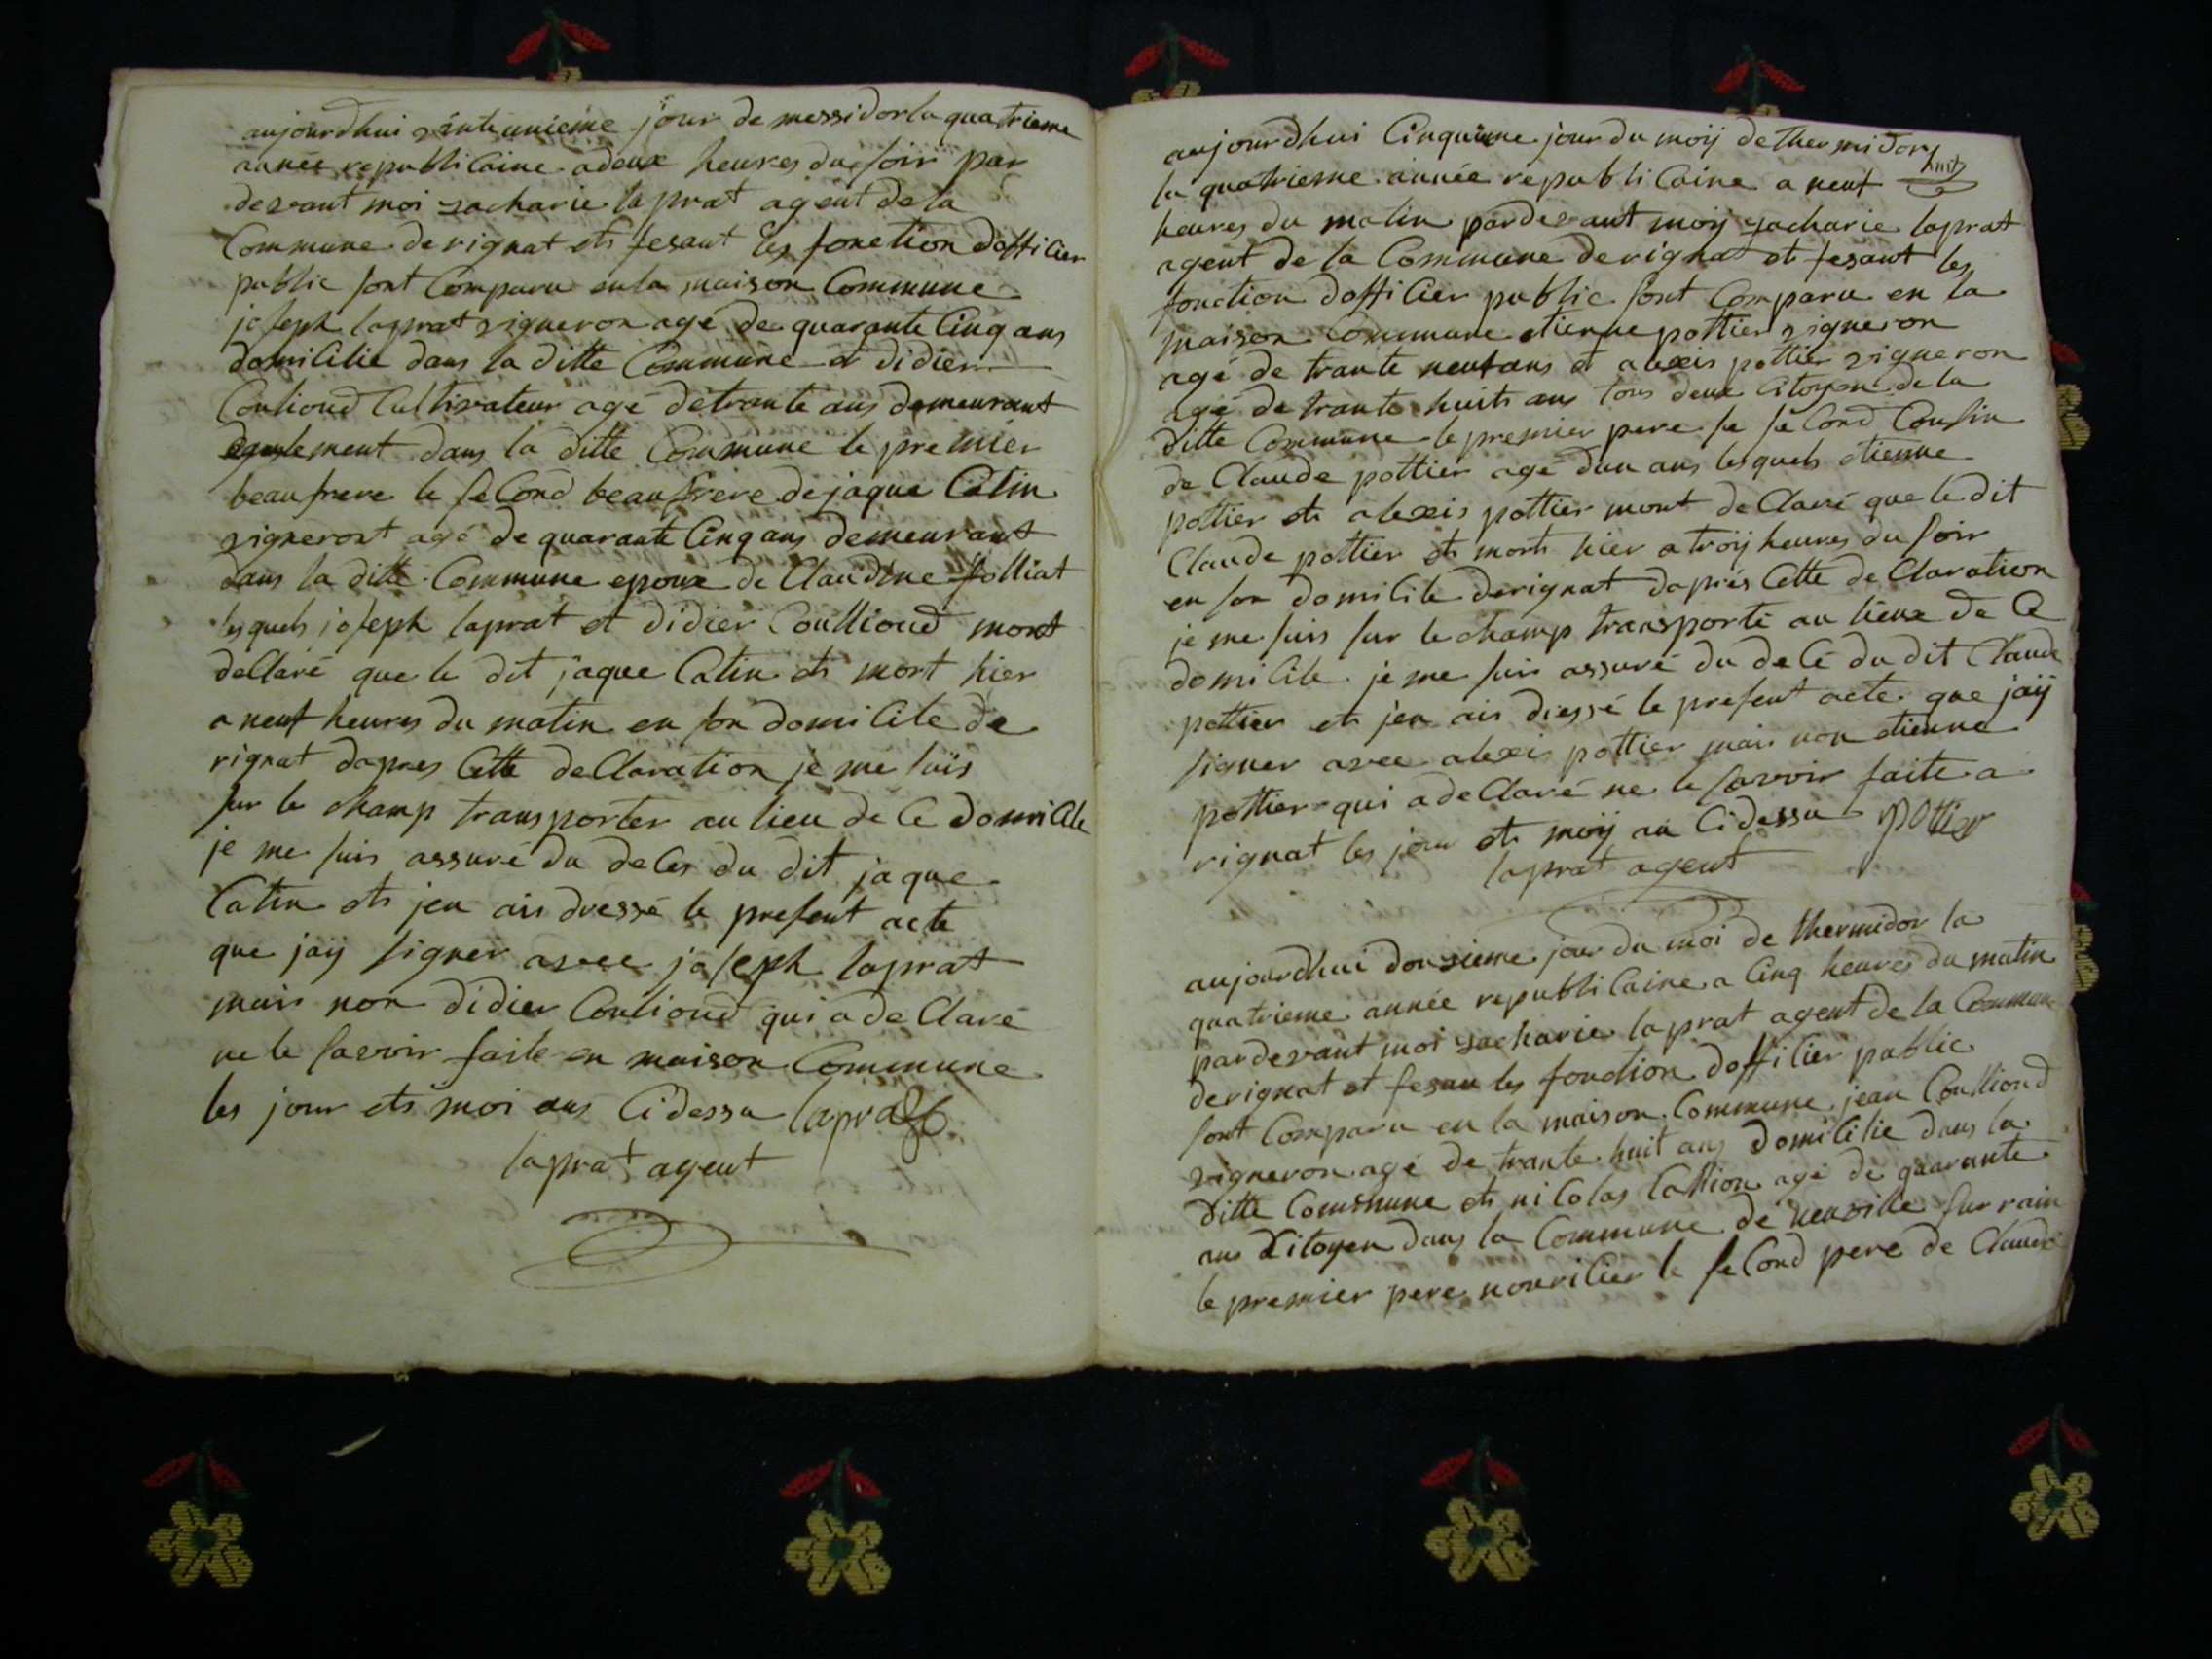 aujourdhui vintunieme jour de messidor la quatrieme
année republicaine a deux heures du soir par
devant moi zacharie laprat agent de la
Commune de rignat et fesant les fonction dofficier
public sont Comparu en la maison Commune
joseph laprat vigneron agé de quarante Cinq ans
domicilie dans la ditte Commune et didier
Coulioud Cultivateur agé de trante ans demeurant
egalement dans la ditte Commune le premier
beaufrere le second beaufrere de jaque Catin
vigneront agé de quarante Cinq ans demeurant
dans la ditte Commune epoux de Claudine folliat
lesquels joseph laprat et didier Coullioud mont
declaré que le dit jaque Catin et mort hier
a neuf heures du matin en son domicile de
rignat dapres Cette declaration je me suis
sur le champ transporter au lieu de Ce domicile
je me suis assuré du deces du dit jaque
Catin et jen ais dressé le present acte
que jaÿ signer avec joseph laprat
mais non didier Coulioud qui a declaré
ne le savoir faite en maison Commune
les jour et moi ans Cidessu laprat
laprat agent
aujourdhui Cinquieme jour du moij de thermidor
huit
la quatrieme année republicaine a neuf
heures du matin pardevant moij zacharie laprat
agent de la Commune de rignat et fesant les
fonction dofficier public sont Comparu en la
maison Commune etienne pottier vigneron
agé de trante neuf ans et alexis pottier vigneron
agé de trante huit ans tous deux Citoyen de la
ditte Commune le premier pere le second Cousin
de Claude pottier agé dun ans lesquels etienne
pottier et alexis pottier mont declaré que le dit
Claude pottier et mort hier a troij heures du soir
en son domicile de rignat daprés Cette declaration
je me suis sur le champ transporté au lieux de Ce
domicile je me suis assuré du decé du dit Claude
pottier et jen ais dressé le present acte que jaÿ
signer avec alexis pottier mais non etienne
pottier qui a declaré ne le savoir faite a
rignat les jour et moij an Cidessu pottier
laprat agent
aujourdhui douzieme jour du moi de thermidor la
quatrieme année republicaine a Cinq heures du matin
pardevant moi zacharie laprat agent de la Commune
de rignat et fesan les fonction dofficier public
sont Comparu en la maison Commune jean Coullioud
vigneron agé de trante huit ans domicilie dans la
ditte Commune et nicolas agé de quarante
ans Citoyen dans la Commune de neuville sur rain
le premier pere nouricier le second pere de Claude